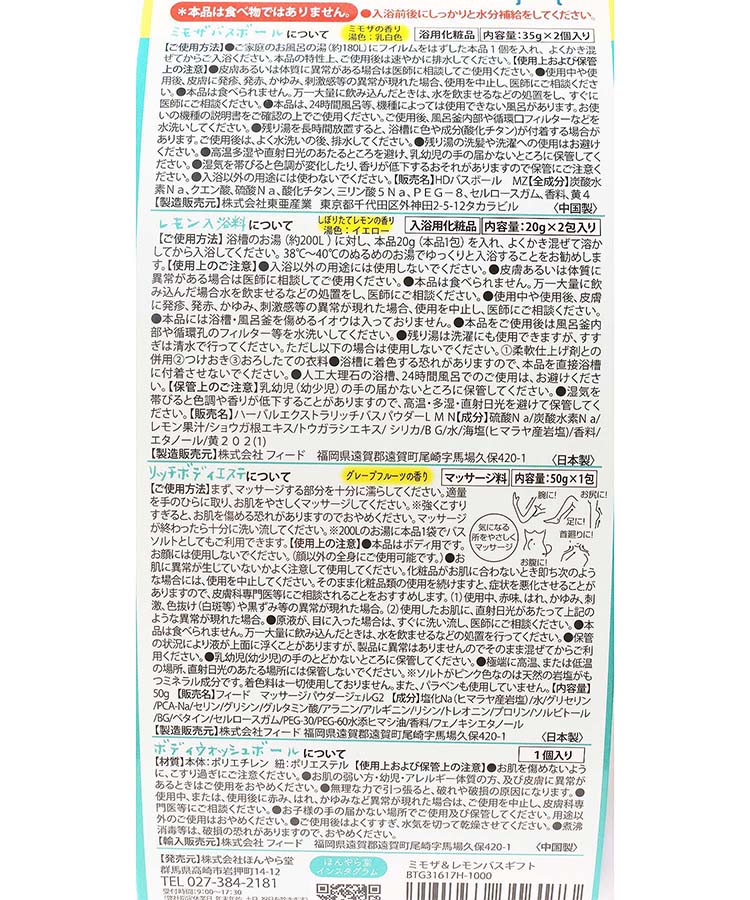 ＊本品は食べ物ではありません。
●入浴前後にしっかりと水分補給をしてください。
ミモザバスボールについて
ミモザの香り
湯色：乳白色
浴用化粧品
内容量：35g×2個入り
【ご使用方法】●ご家庭のお風呂の湯(約180L)にフイルムをはずした本品1個を入れ、よくかき混
ぜてからご入浴ください。本品の特性上、ご使用後は速やかに排水してください。【使用上および保管
上の注意】●皮膚あるいは体質に異常がある場合は医師に相談してご使用ください。●使用中や使
用後、皮膚に発疹、発赤、かゆみ、刺激感等の異常が現れた場合、使用を中止し、医師にご相談くださ
い。●本品は食べられません。万一大量に飲み込んだときは、水を飲ませるなどの処置をし、すぐに
医師にご相談ください。●本品は、24時間風呂等、機種によっては使用できない風呂があります。お使
いの機種の説明書をご確認の上でご使用ください。ご使用後、風呂釜内部や循環口フィルターなどを
水洗いしてください。●残り湯を長時間放置すると、浴槽に色や成分(酸化チタン)が付着する場合が
あります。ご使用後は、よく水洗いの後、排水してください。●残り湯の洗髪や洗濯への使用はお避け
ください。●高温多湿や直射日光のあたるところを避け、乳幼児の手の届かないところに保管してく
ださい。●湿気を帯びると色調が変化したり、香りが低下するおそれがありますので保管にご注意く
ださい。●入浴以外の用途には使わないでください。【販売名】HDバスボール　MZ【全成分】炭酸水
素Ｎａ、クエン酸、硫酸Ｎａ、酸化チタン、三リン酸５Ｎａ、ＰＥＧ－８、セルロースガム、香料、黄４
【製造販売元】株式会社東亜産業　東京都千代田区外神田2-5-12タカラビル
〈中国製〉
レモン入浴料について
しぼりたてレモンの香り
湯色：イエロー
入浴用化粧品
内容量：20g×2包入り
【ご使用方法】浴槽のお湯（約200L）に対し、本品20g（本品1包）を入れ、よくかき混ぜて溶か
してから入浴してください。38℃〜40℃のぬるめのお湯でゆっくりと入浴することをお勧めしま
す。【使用上のご注意】●入浴以外の用途には使用しないでください。●皮膚あるいは体質に
異常がある場合は医師に相談してご使用ください。●本品は食べられません。万一大量に飲
み込んだ場合水を飲ませるなどの処置をし、医師にご相談ください。●使用中や使用後、皮膚
に発疹、発赤、かゆみ、刺激感等の異常が現れた場合、使用を中止し、医師にご相談ください。
●本品には浴槽・風呂釜を傷めるイオウは入っておりません。●本品をご使用後は風呂釜内
部や循環孔のフィルター等を水洗いしてください。●残り湯は洗濯にも使用できますが、すす
ぎは清水で行ってください。ただし以下の場合は使用しないでください。①柔軟仕上げ剤との
併用②つけおき③おろしたての衣料●浴槽に着色する恐れがありますので、本品を直接浴槽
に付着させないでください。●人工大理石の浴槽、24時間風呂でのご使用は、お避けくださ
い。【保管上のご注意】乳幼児（幼少児）の手の届かないところに保管してください。●湿気を
帯びると色調や香りが低下することがありますので、高温・多湿・直射日光を避けて保管してく
ださい。【販売名】ハーバルエクストラリッチバスパウダーＬＭＮ【成分】硫酸Ｎa/炭酸水素Ｎa/
レモン果汁/ショウガ根エキス/トウガラシエキス/ シリカ/ＢＧ/水/海塩(ヒマラヤ産岩塩)/香料/
エタノール/黄２０２(1)
【製造販売元】株式会社 フィード　福岡県遠賀郡遠賀町尾崎字馬場久保420-1
〈日本製〉
リッチボディエステについて
グレープフルーツの香り
マッサージ料
内容量：50g×1包
【ご使用方法】まず、マッサージする部分を十分に濡らしてください。適量
を手のひらに取り、お肌をやさしくマッサージしてください。※強くこすり
すぎると、お肌を傷める恐れがありますのでおやめください。マッサージ
が終わったら十分に洗い流してください。※200Lのお湯に本品1袋でバス
ソルトとしてもご利用できます。【使用上の注意】●本品はボディ用です。
お顔には使用しないでください。（顔以外の全身にご使用可能です。）●お
肌に異常が生じていないかよく注意して使用してください。化粧品がお肌に合わないとき即ち次のよう
な場合には、使用を中止してください。そのまま化粧品類の使用を続けますと、症状を悪化させることが
ありますので、皮膚科専門医等にご相談されることをおすすめします。(1)使用中、赤味、はれ、かゆみ、刺
激、色抜け（白斑等）や黒ずみ等の異常が現れた場合。(2)使用したお肌に、直射日光があたって上記の
ような異常が現れた場合。●原液が、目に入った場合は、すぐに洗い流し、医師にご相談ください。●本
品は食べられません。万一大量に飲み込んだときは、水を飲ませるなどの処置を行ってください。●保管
の状況により液が上面に浮くことがありますが、製品に異常はありませんのでそのまま混ぜてからご利
用ください。●乳幼児(幼少児)の手のとどかないところに保管してください。●極端に高温、または低温
の場所、直射日光のあたる場所には保管しないでください。※ソルトがピンク色なのは天然の岩塩がも
つミネラル成分です。着色料は一切使用しておりません。また、パラベンも使用していません。【内容量】
50g 【販売名】フィード　マッサージパウダージェルG2 【成分】塩化Na（ヒマラヤ産岩塩）/水/グリセリン
/PCA-Na/セリン/グリシン/グルタミン酸/アラニン/アルギニン/リシン/トレオニン/プロリン/ソルビトール
/BG/ベタイン/セルロースガム/PEG-30/PEG-60水添ヒマシ油/香料/フェノキシエタノール
【製造販売元】株式会社 フィード　福岡県遠賀郡遠賀町尾崎字馬場久保420-1
〈日本製〉
腕に!
お尻に!
足に!
気になる
所をやさしく
マッサージ
お腹に!
首廻りに!
ボディウォッシュボールについて
1個入り
【材質】本体：ポリエチレン 紐：ポリエステル 【使用上および保管上の注意】●お肌を傷めないよう
に、こすり過ぎにご注意ください。●お肌の弱い方・幼児・アレルギー体質の方、及び皮膚に異常が
あるときはご使用をおやめください。●無理な力で引っ張ると、破れや破損の原因になります。●
使用中、または、使用後に赤み、はれ、かゆみなど異常が現れた場合は、ご使用を中止し、皮膚科専
門医等にご相談ください。●お子様の手の届かない場所でご使用及び保管してください。用途以
外のご使用はおやめください。●ご使用後はよくすすぎ、水気を切って乾燥させてください。●煮沸
消毒等は、破損の恐れがありますので、おやめください。
【輸入販売元】株式会社 フィード　福岡県遠賀郡遠賀町尾崎字馬場久保420-1
〈中国製〉
【発売元】株式会社ほんやら堂
群馬県高崎市岩押町14-12
TEL 027-384-2181
【受付時間】9:00〜17:30
ほんやら堂
インスタグラム
ミモザ&レモンバスギフト
BTG31617H-1000